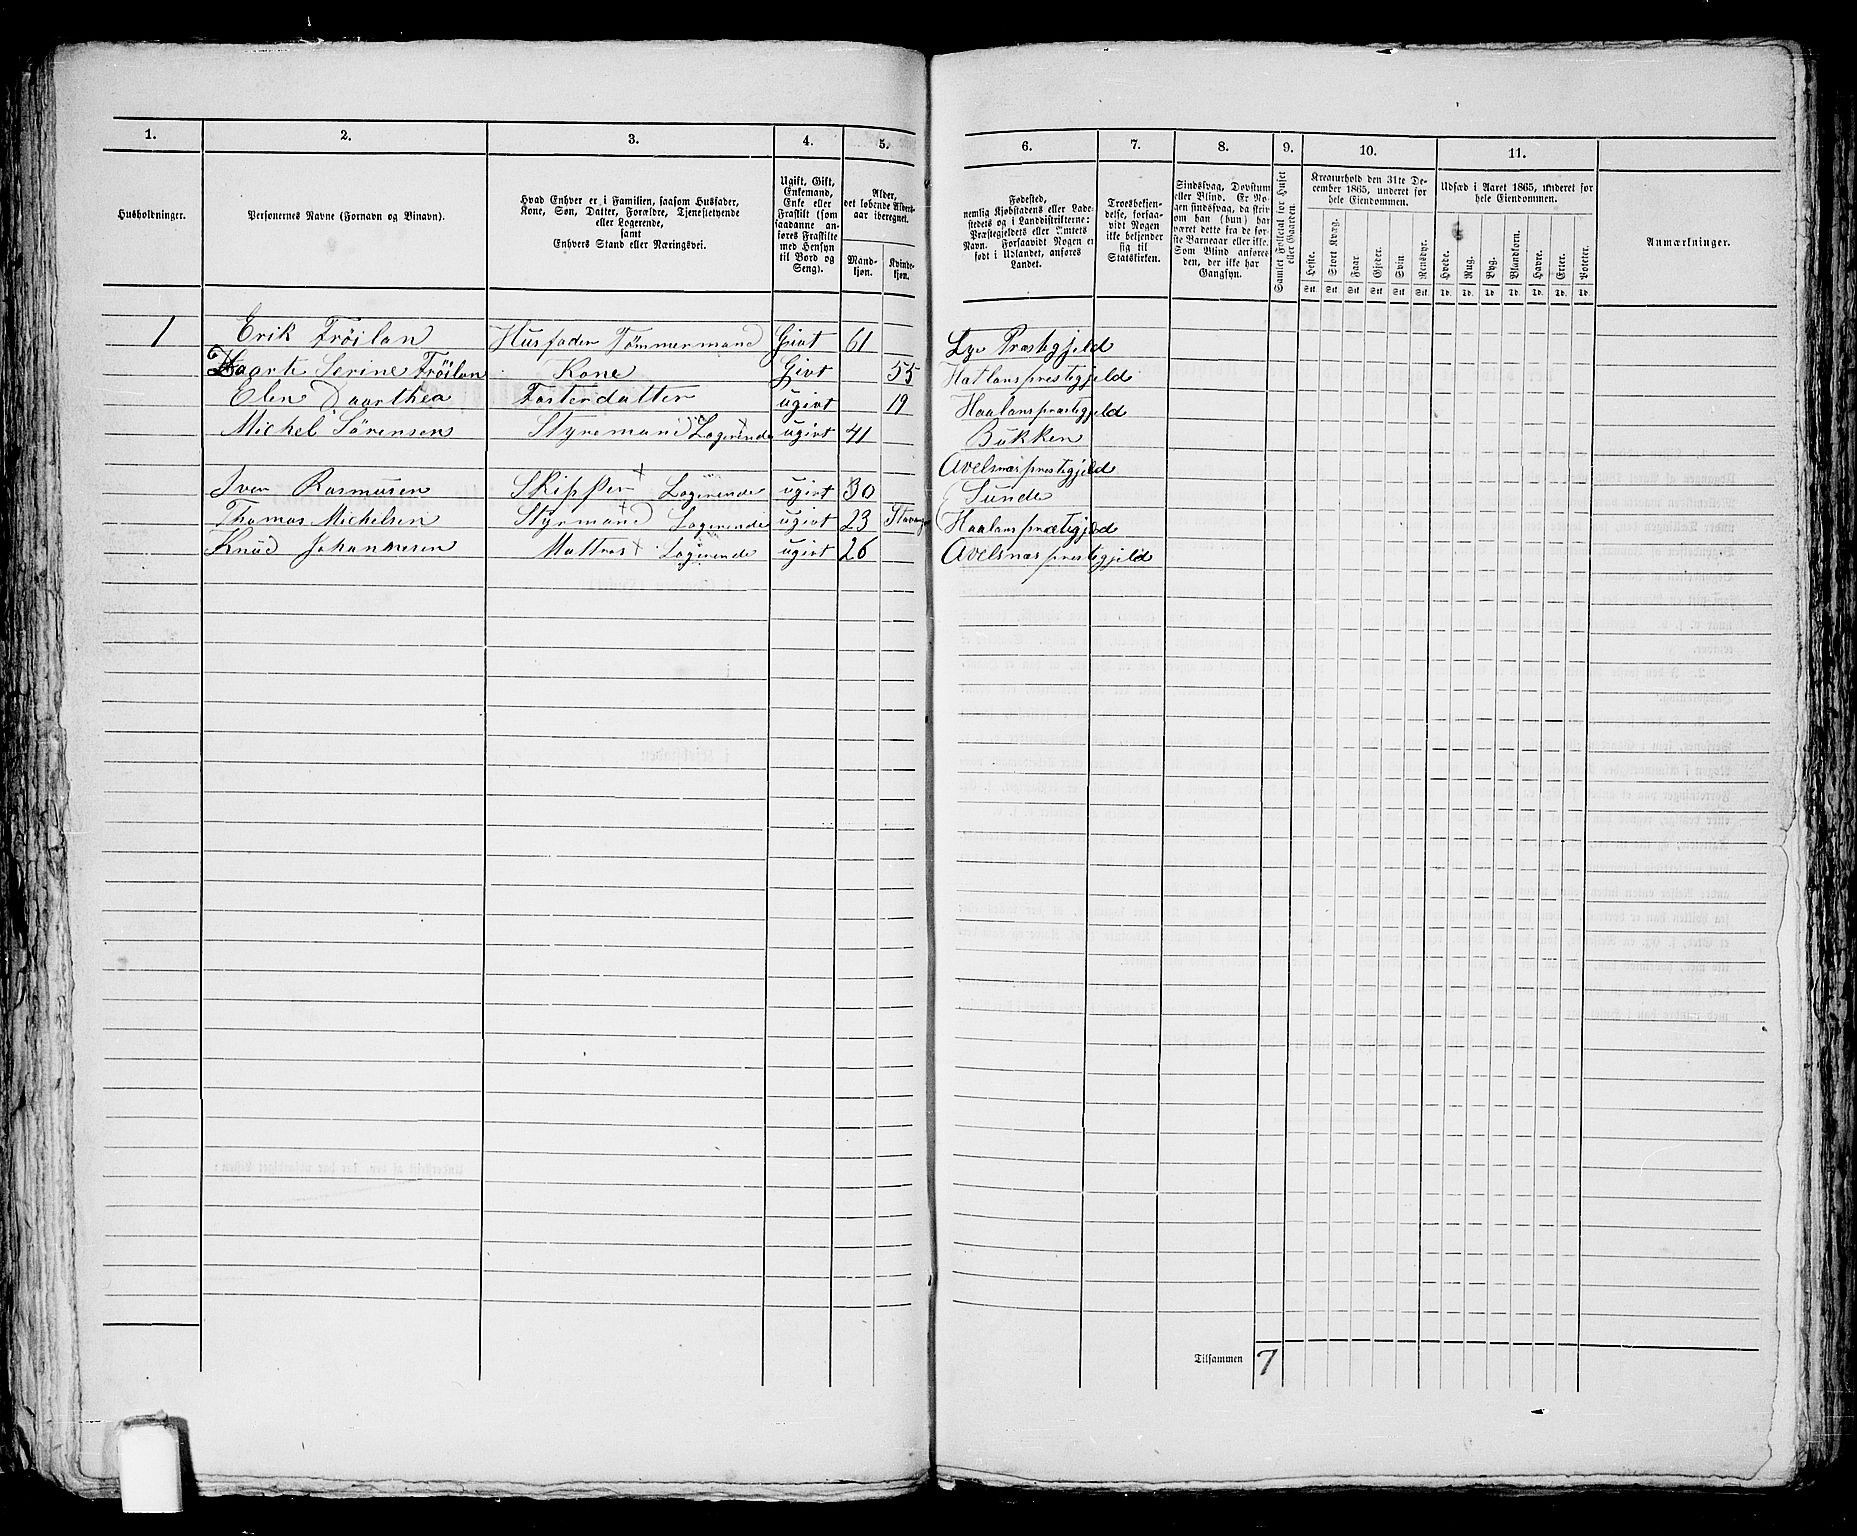 1.
2.
3.
4.
5.
6.
7.
8.
9.
10.
11.
Husholdninger.
Personernes Navne (Fornavn og Binavn).
Hvad Enhver er i Familien, saasom Husfader,
Kone, Søn, Datter, Forældre, Tjenestetyende
eller Logerende,
samt
Enhvers Stand eller Næringsvei.
Ugift, Gift,
Enkemand,
Enke eller
Fraskilt (som
saadanne an-
føres Fraskilte
med Hensyn
til Bord og
Seng).
Alder,
det løbende Alders-
aar iberegnet.
Mand-
kjøn.
Kvinde-
kjøn.
Fødested,
nemlig Kjøbstadens eller Lade-
stedets og i Landdistrikterne:
Præstegjeldets eller Amtets
Navn. Forsaavidt Nogen er
født i Udlandet, anføres
Landet.
Troesbekjen-
delse, forsaa-
vidt Nogen
ikke bekjender
sig til
Statskirken.
Sindssvag, Døvstum
eller Blind. Er No-
gen sindssvag, da skriv
om han (hun) har
været dette fra de før-
ste Barneaar eller ikke.
Som Blind anføres
den, der ikke har
Gangsyn.
Samlet Folketal for Huset
eller Gaarden.
Kreaturhold den 31te De-
cember 1865, underet for
hele Eiendommen.
Heste.
Stort Kvæg.
Faar.
Gjeder.
Svin.
Rensdyr.
Stk. Stk. Stk. Stk. Stk. Stk.
Udsæd i Aaret 1865, underet for
hele Eiendommen.
Hvede.
Rug.
Byg.
Blandkorn.
Havre.
Erter.
Poteter.
Td. Td. Td. Td. Td. Td. Td.
Anmærkninger.
1 Erik Trøilan Husfader Tømmermand Givt 61 Lye Præstegjeld
Daarte Serine Trøilan Kone Givt 55 Hatlansprestegjeld
Elen Daarthea Fosterdatter ugivt 19 Haalansprestegjeld
Michel Sørensen Styremand Logerende ugivt 41 Bukken
Avelsnæsprestegjeld
Iver Rasmusen Skipper + Logerende ugivt 30 Sunde
Thomas Michelsen Styrmand + Logerende ugivt 23 Haalansprætegjeld
Knud Johannesen Mattros + Logerende ugivt 26 Avelsnæsprestegjeld
Tilsammen 7